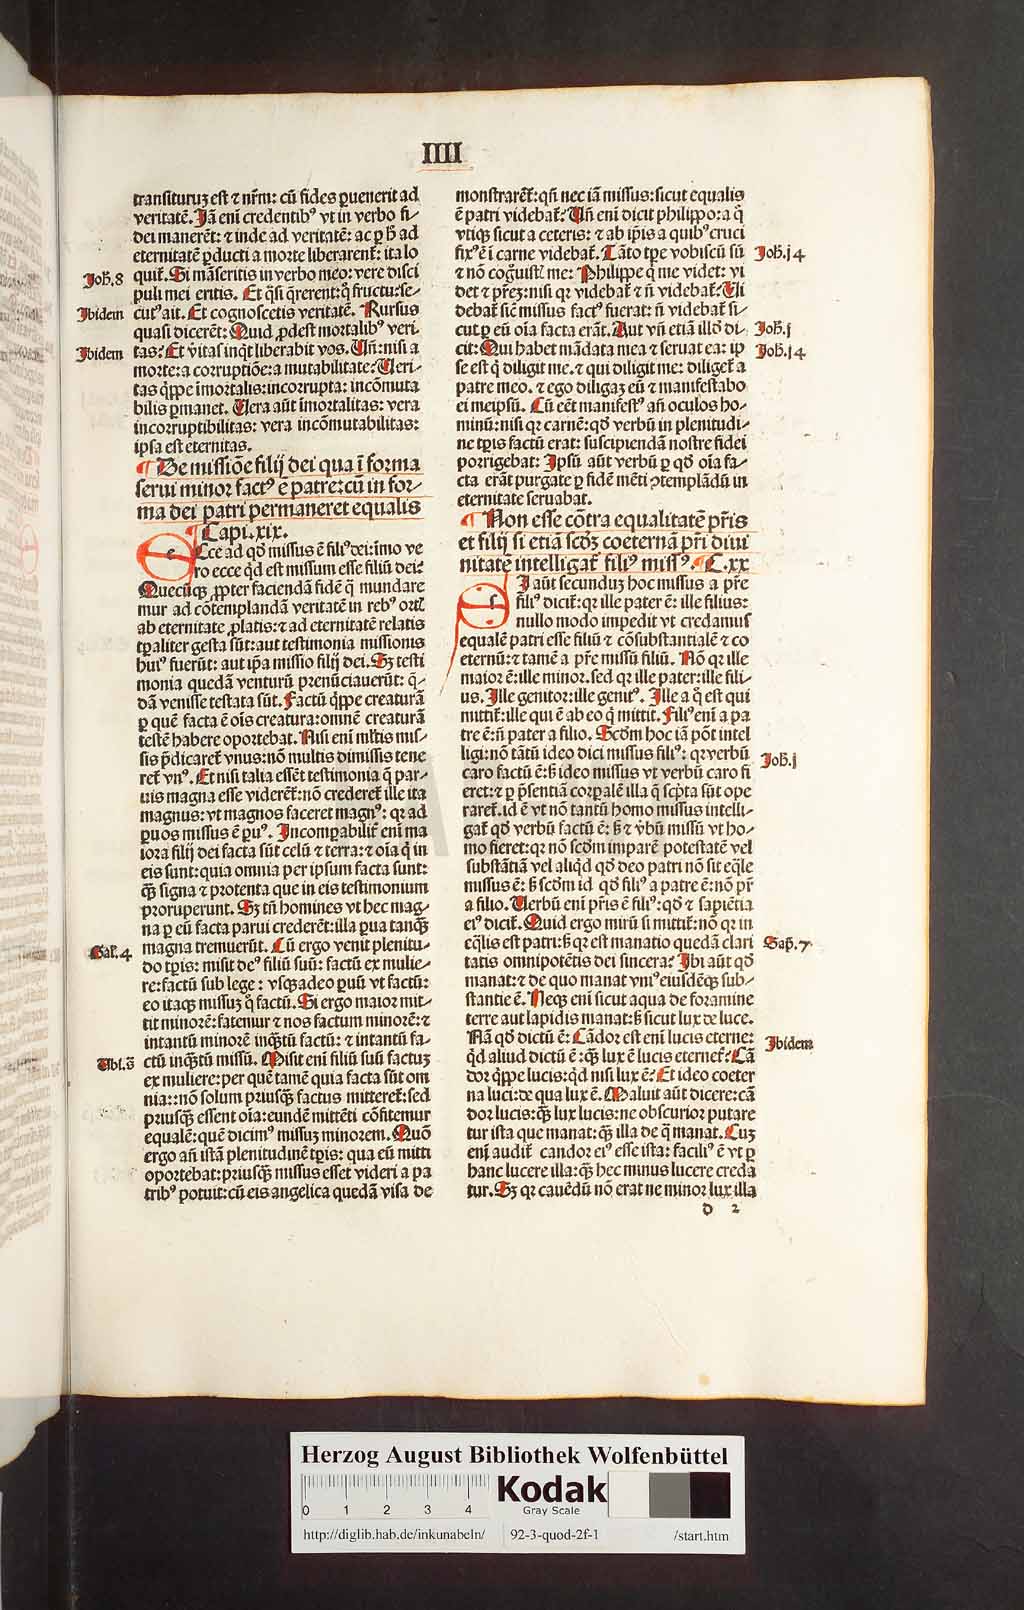 IIII
transituruʒ est ⁊ nr̄m: cū fides ꝑuenerit ad
veritatē. Jā eni credentibꝰ vt in verbo fi⸗
dei manerēt: ⁊ inde ad veritatē: ac ꝑ h̄ ad
eternitatē ꝑducti a morte liberarent̄: ita lo
quit̄. Si māseritis in verbo meo: vere disci
puli mei eritis. Et q̄si q̄rerent: q̊ fructu: se⸗
cutꝰ ait. Et cognoscetis veritatē. Rursus
quasi dicerēt: Quid ꝓdest mortalibꝰ veri⸗
tas? Et vitas inq̇t liberabit vos. Uñ: nisi a
morte: a corruptiōe: a mutabilitate? Ueri⸗
tas q̇ppe īmortalis: incorrupta: incōmuta
bilis ꝑmanet. Uera aūt īmortalitas: vera
incorruptibilitas: vera incōmutabilitas:
ipsa est eternitas.
¶ De missiōe filij dei qua ī forma
serui minor factꝰ ē patre: cū in for⸗
ma dei patri permaneret equalis
Capi. xix.
Ecce ad qđ missus ē filiꝰ dei: imo ve
ro ecce q̇d est missum esse filiū dei?
Quecūqꝫ ꝓpter faciendā fidē q̄ mundare
mur ad cōtemplandā veritatē in rebꝰ ortꝭ
ab eternitate ꝓlatis: ⁊ ad eternitatē relatis
tꝑaliter gesta sūt: aut testimonia missionis
huiꝰ fuerūt: aut ip̄a missio filij dei. Sꝫ testi
monia quedā venturū prenūciauerūt: q̄⸗
dā venisse testata sūt. Factū q̇ppe creaturā
ꝑ quē facta ē ois creatura: omnē creaturā
testē habere oportebat. Nisi eni mꝉtis mis⸗
sis p̄dicaret̄ vnus: nō multis dimissis tene
ret̄ vnꝰ. Et nisi talia essēt testimonia q̄ par⸗
uis magna esse viderēt: nō crederet̄ ille ita
magnus: vt magnos faceret magnꝰ: qr ad
ꝑuos missus ē ꝑuꝰ. Incompabilit̄ eni ma
iora filij dei facta sūt celū ⁊ terra: ⁊ oīa q̄ in
eis sunt: quia omnia per ipsum facta sunt:
q̄ꝫ signa ⁊ protenta que in eis testimonium
proruperunt. Sꝫ tn̄ homines vt hec mag⸗
na ꝑ eū facta parui crederēt: illa ꝑua tanq̄ꝫ
magna tremuerūt. Cū ergo venit plenitu⸗
do tꝑis: misit deꝰ filiū suū: factū ex mulie⸗
re: factū sub lege: vsqꝫ adeo ꝑuū vt factū:
eo itaqꝫ missuꝫ q̊ factū. Si ergo maior mit⸗
tit minorē: fatemur ⁊ nos factum minorē: ⁊
intantū minorē inq̄tū factū: ⁊ intantū fa⸗
ctū inq̄tū missū. Misit eni filiū suū factuꝫ
ex muliere: per quē tamē quia facta sūt om
nia: nō solum priusq̄ꝫ factus mitteret̄: sed
priusq̄ꝫ essent oīa: eundē mittēti cōfitemur
equalē: quē dicimꝰ missuꝫ minorem. Quō
ergo añ istā plenitudinē tꝑis: qua eū mitti
oportebat: priusq̄ꝫ missus esset videri a pa
tribꝰ potuit: cū eis angelica quedā visa de
Joh̄. 8
Ibidem
Ibidem
Gal̄. 4
Ubi. s̄
monstrarēt̄: qñ nec iā missus: sicut equalis
ē patri videbat̄? Uñ eni dicit philippo: a q̊
vtiqꝫ sicut a ceteris: ⁊ ab ip̄is a quibꝰ cruci
fixꝰ ē ī carne videbat̄. Tāto tꝑe vobiscū sū
⁊ nō cognuistꝭ me: Philippe q̇ me videt: vi
det ⁊ pr̄eꝫ: nisi qr videbat̄ ⁊ ñ videbat̄? Ui
debat̄ sic̄ missus factꝰ fuerat: ñ videbat̄ si⸗
cut ꝑ eū oīa facta erāt. Aut vñ etiā illđ di⸗
cit: Qui habet mādata mea ⁊ seruat ea: ip̄
se est q̇ diligit me. ⁊ qui diligit me: diliget̄ a
patre meo. ⁊ ego diligaꝫ eū ⁊ manifestabo
ei meipsū. Cū eēt manifestꝰ añ oculos ho⸗
minū: nisi qr carnē: qđ verbū in plenitudi⸗
ne tꝑis factū erat: suscipiendā nostre fidei
porrigebat: Ipsū aūt verbū ꝑ qđ oīa fa⸗
cta erāt purgate ꝑ fidē mēti ꝯtemplādū in
eternitate seruabat.
¶ Non esse cōtra equalitatē pr̄is
et filij si etiā scđꝫ coeternā pr̄i diui
nitatē intelligat̄ filiꝰ missꝰ. ¶ C. xx
Si aūt secunduꝫ hoc missus a pr̄e
filiꝰ dicit̄: qr ille pater ē: ille filius:
nullo modo impedit vt credamus
equalē patri esse filiū ⁊ cōsubstantialē ⁊ co
eternū: ⁊ tamē a pr̄e missū filiū. Nō qr ille
maior ē: ille minor. sed qr ille pater: ille fili⸗
us. Ille genitor: ille genitꝰ. Ille a q̊ est qui
mittit̄: ille qui ē ab eo q̇ mittit. Filiꝰ eni a pa
tre ē: ñ pater a filio. Scđm hoc iā pōt intel
ligi: nō tātū ideo dici missus filiꝰ: qr verbū
caro factū ē: ꝫ ideo missus vt verbū caro fi
eret: ⁊ ꝑ p̄sentiā corꝑalē illa q̄ scp̄ta sūt ope
raret̄. id ē vt nō tantū homo missus intelli⸗
gat̄ qđ verbū factū ē: ꝫ ⁊ v̄bū missū vt ho⸗
mo fieret: qr nō scđm imparē potestatē vel
substātiā vel aliq̇d qđ deo patri nō sit eq̄le
missus ē: ꝫ scđm id qđ filiꝰ a patre ē: nō pr̄
a filio. Uerbū eni pr̄is ē filiꝰ: qđ ⁊ sapiētia
eiꝰ dicit̄. Quid ergo mirū si mittit̄: nō qr in
eq̄lis est patri: ꝫ qr est manatio quedā clari
tatis omnipotētis dei sincera? Ibi aūt qđ
manat: ⁊ de quo manat vniꝰ eiusdēqꝫ sub⸗
stantie ē. Neqꝫ eni sicut aqua de foramine
terre aut lapidis manat: ꝫ sicut lux de luce.
Nā qđ dictū ē: Cādor est eni lucis eterne:
q̇d aliud dictū ē: q̄ꝫ lux ē lucis eterne? Cā
dor q̇ppe lucis: q̇d nisi lux ē? Et ideo coeter
na luci: de qua lux ē. Maluit aūt dicere: cā
dor lucis: q̄ꝫ lux lucis: ne obscurior putare
tur ista que manat: q̄ꝫ illa de q̄ manat. Cuꝫ
eni audit̄ candor eiꝰ esse ista: faciliꝰ ē vt ꝑ
hanc lucere illa: q̄ꝫ hec minus lucere creda
tur. Sꝫ qr cauēdū nō erat ne minor lux illa
Joh̄. j4
Joh̄. j
Joh̄. j4
Joh̄. j
Sap̄. 7
Ibidem
d 2
Herzog August Bibliothek Wolfenbüttel
0 1 2 3 4
Kodak
Gray Scale
http://diglib.hab.de/inkunabeln/ 92-3-quod-2f-1 /start.htm